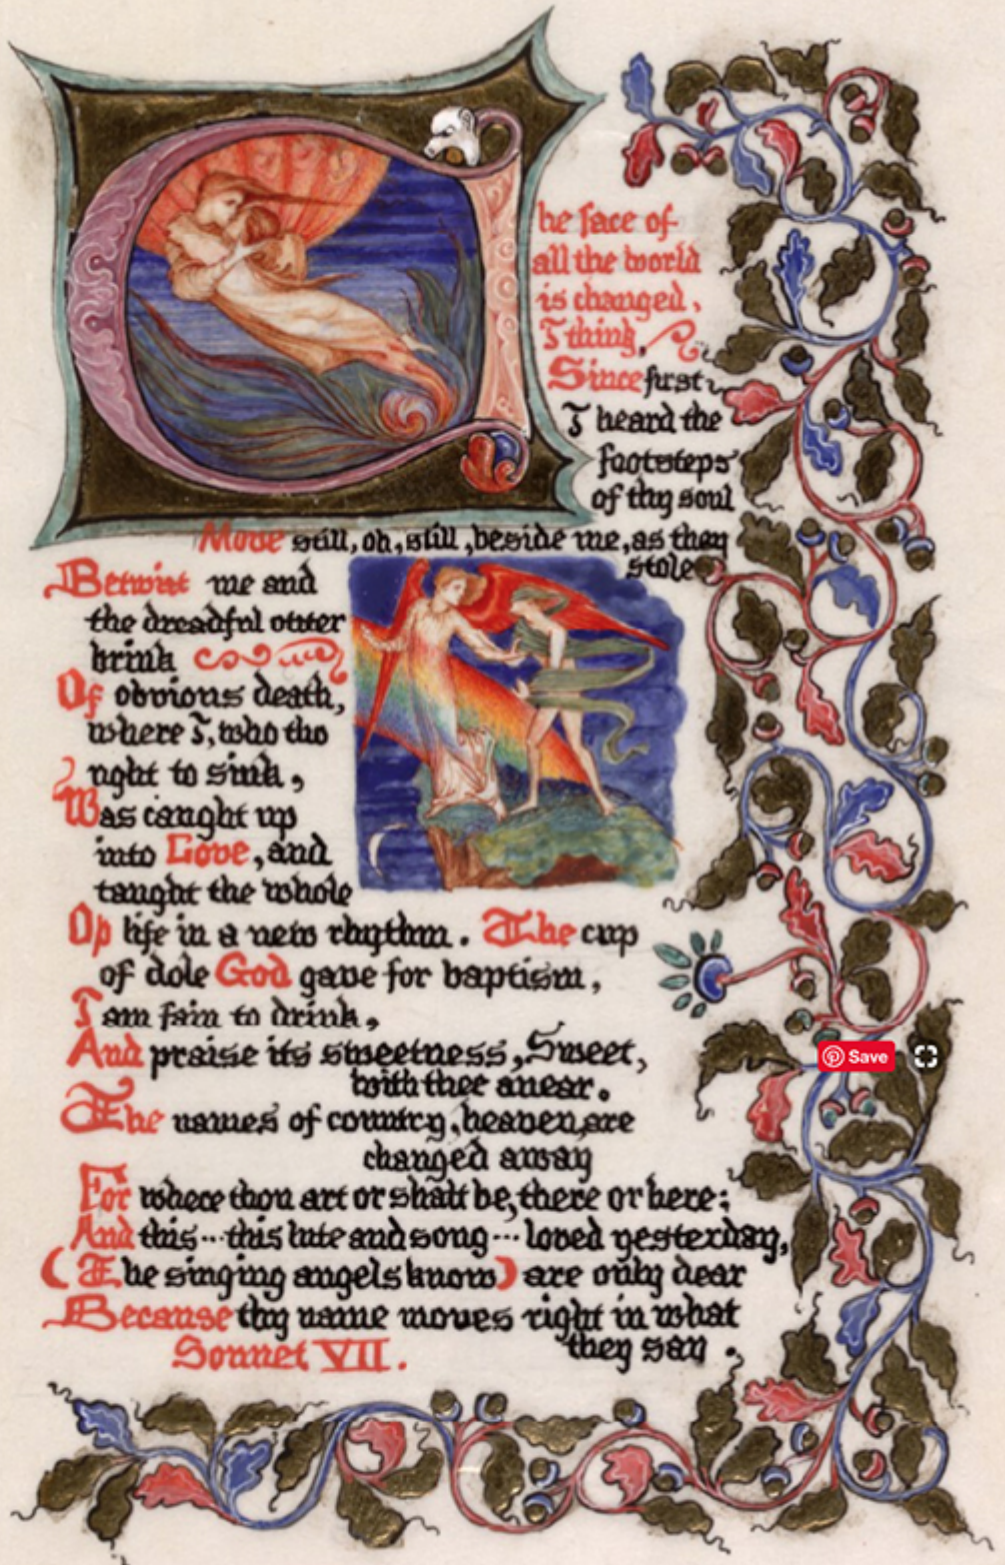 The face of
all the world
is changed,
I think,
Since first
I heard the
footsteps
of thy soul
Move still, oh, still, beside me, as they
stole
Betwixt me and
the dreadful outer
brink
Of obvious death,
where I, who tho
ught to sink,
Was caught up
into Love, and
taught the whole
Of life in a new rhythm. The cup
of dole God gave for baptism,
I am fain to drink,
And praise its sweetness, Sweet,
with thee anear.
The names of country, heaven, are
changed away
For where thou art or shalt be, there or here;
And this... this lute and song... loved yesterday,
(The singing angels know) are only dear
Because thy name moves right in what
they say.
Sonnet VII.
Save